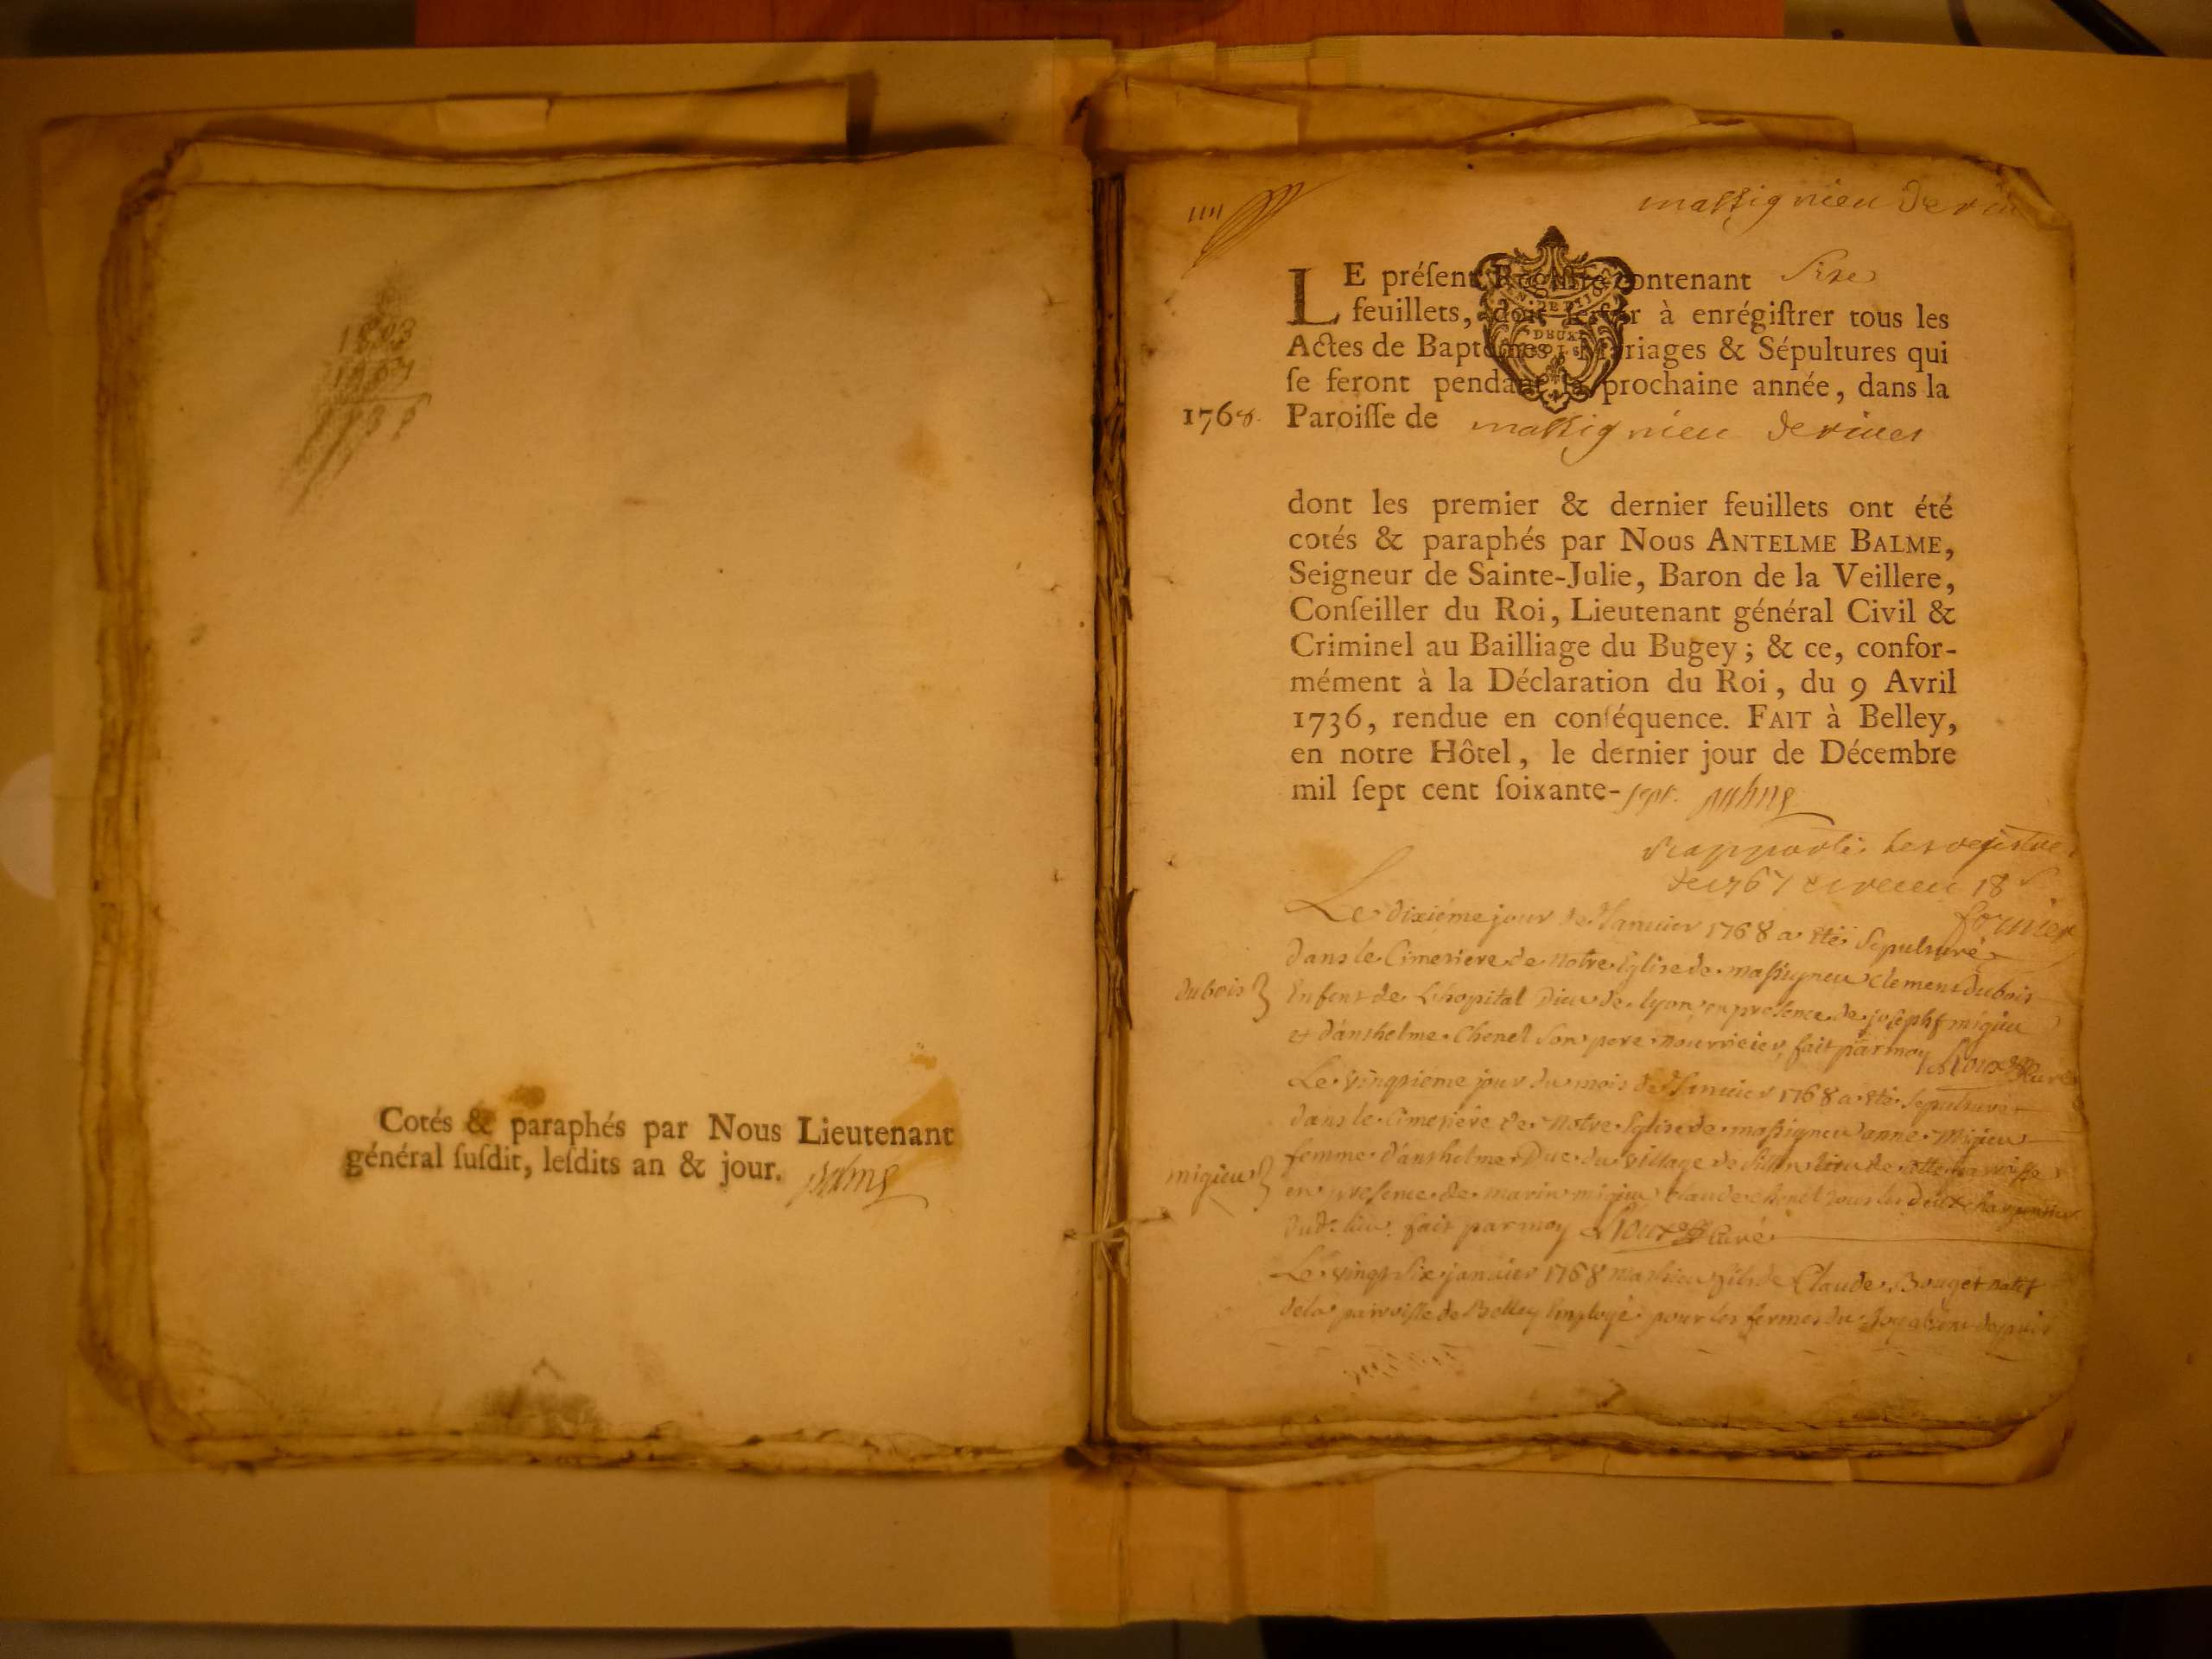 Cotés & paraphés par Nous Lieutenant
général ſuſdit, leſdits an & jour. Balme
massignieu de rives
LE préſent Regiſtre contenant Sixe
feuillets, doit ſervir à enrégiſtrer tous les
Actes de Baptêmes, Mariages & Sépultures qui
ſe feront pendant la prochaine année, dans la
1768. Paroiſſe de massignieu de rives
dont les premier & dernier feuillets ont été
cotés & paraphés par Nous ANTELME BALME,
Seigneur de Sainte-Julie, Baron de la Veillere,
Conſeiller du Roi, Lieutenant général Civil &
Criminel au Bailliage du Bugey; & ce, confor-
mément à la Déclaration du Roi, du 9 Avril
1736, rendue en conſéquence. FAIT à Belley,
en notre Hôtel, le dernier jour de Décembre
mil ſept cent ſoixante-sept. Balme
Rapporté les registres
de 1767 et receu 18 s
fornier
Le dixiéme jour de Janvier 1768 a été Sepulturé
dans le Cimetiere de notre Eglise de massigneu Clement Dubois
dubois Enfent de L'hopital Dieu de lyon, en presence de joseph migieu
et d'anthelme Chenel Son pere nourricier, fait par moy Curé
Le vingtiéme jour du mois de Janvier 1768 a été Sepulturée
dans le Cimetiere de notre Eglise de massigneu anne Migieu
migieu femme d'anthelme Duc du village de de cette parroisse
en presence de marin migieu Claude Chenel tous les deux charpentier
dud. lieu. fait par moy Curé
Le vingt Six janvier 1768 mathieu fils de Claude Bouget natif
de la parroisse de Belley Employé pour les fermes du Roy absent depuis